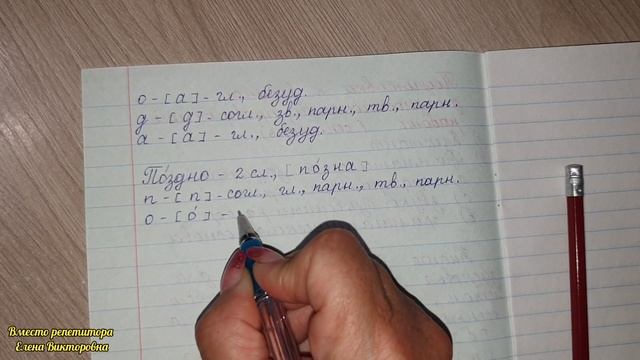 о – [а] – гл., безуд.
д – [д] – согл., зв., парн., тв., парн.
а – [а] – гл., безуд.
По́здно – 2 сл., [по́зна]
п – [п] – согл., гл., парн., тв., парн.
о – [о́] –
Вместо репетитора
Елена Викторовна